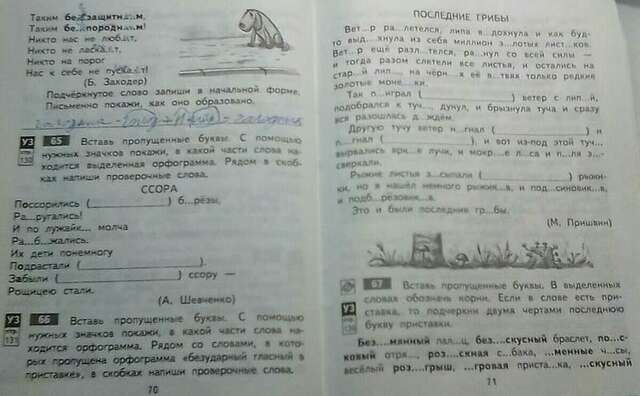 Таким бе...защитн...м,
Таким бе...породн...м!
Никто нас не люб...т,
Никто не ласка...т,
Никто на порог
Нас к себе не пуска...т!
(Б. Заходер)
Подчёркнутое слово запиши в начальной форме.
Письменно покажи, как оно образовано.
УЗ
стр.
130
65 Вставь пропущенные буквы. С помощью
нужных значков покажи, в какой части слова на-
ходится выделенная орфограмма. Рядом в скоб-
ках напиши проверочные слова.
ССОРА
Поссорились ( ) б...рёзы,
Ра...ругались!
И по лужайк... молча
Ра...б...жались.
Их дети понемногу
Подрастали ( )
Забыли ( ) ссору —
Рощицею стали.
(А. Шевченко)
УЗ
стр.
131
66 Вставь пропущенные буквы. С помощью
нужных значков покажи, в какой части слова на-
ходится орфограмма. Рядом со словами, в кото-
рых пропущена орфограмма «безударный гласный в
приставке», в скобках напиши проверочные слова.
70
ПОСЛЕДНИЕ ГРИБЫ
Вет...р ра...летелся, липа в...дохнула и как буд-
то выд...хнула из себя миллион з...лотых лист...ков.
Вет...р ещё разл...телся, ра...нул со всей силы —
и тогда разом слетели все листья, и остались на
стар...й лип..., на чёрн...х её в...твях только редкие
золотые моне...ки.
Так п...играл ( ) ветер с лип...й,
подобрался к туч..., дунул, и брызнула туча и сразу
вся разошлась д...ждём.
Другую тучу ветер н...гнал ( ) и
п...гнал ( ), и вот из-под этой туч...
вырвались ярк...е лучи, и мокр...е л...са и п...ля з...-
сверкали.
Рыжие листья з...сыпали ( ) рыжи-
ки, но я нашёл немного рыжик...в, и под...синовик...в,
и подб...рёзовик...в.
Это и были последние гр...бы.
(М. Пришвин)
УЗ
стр.
67 Вставь пропущенные буквы. В выделенных
словах обозначь корни. Если в слове есть при-
ставка, то подчеркни двумя чертами последнюю
букву приставки.
Без...мянный пал...ц, без...скусный браслет, по...с-
ковый отря..., роз...скная с...бака, ...менные ч...сы,
весёлый роз...грыш, ...гровая приста...ка, ...скусный
71